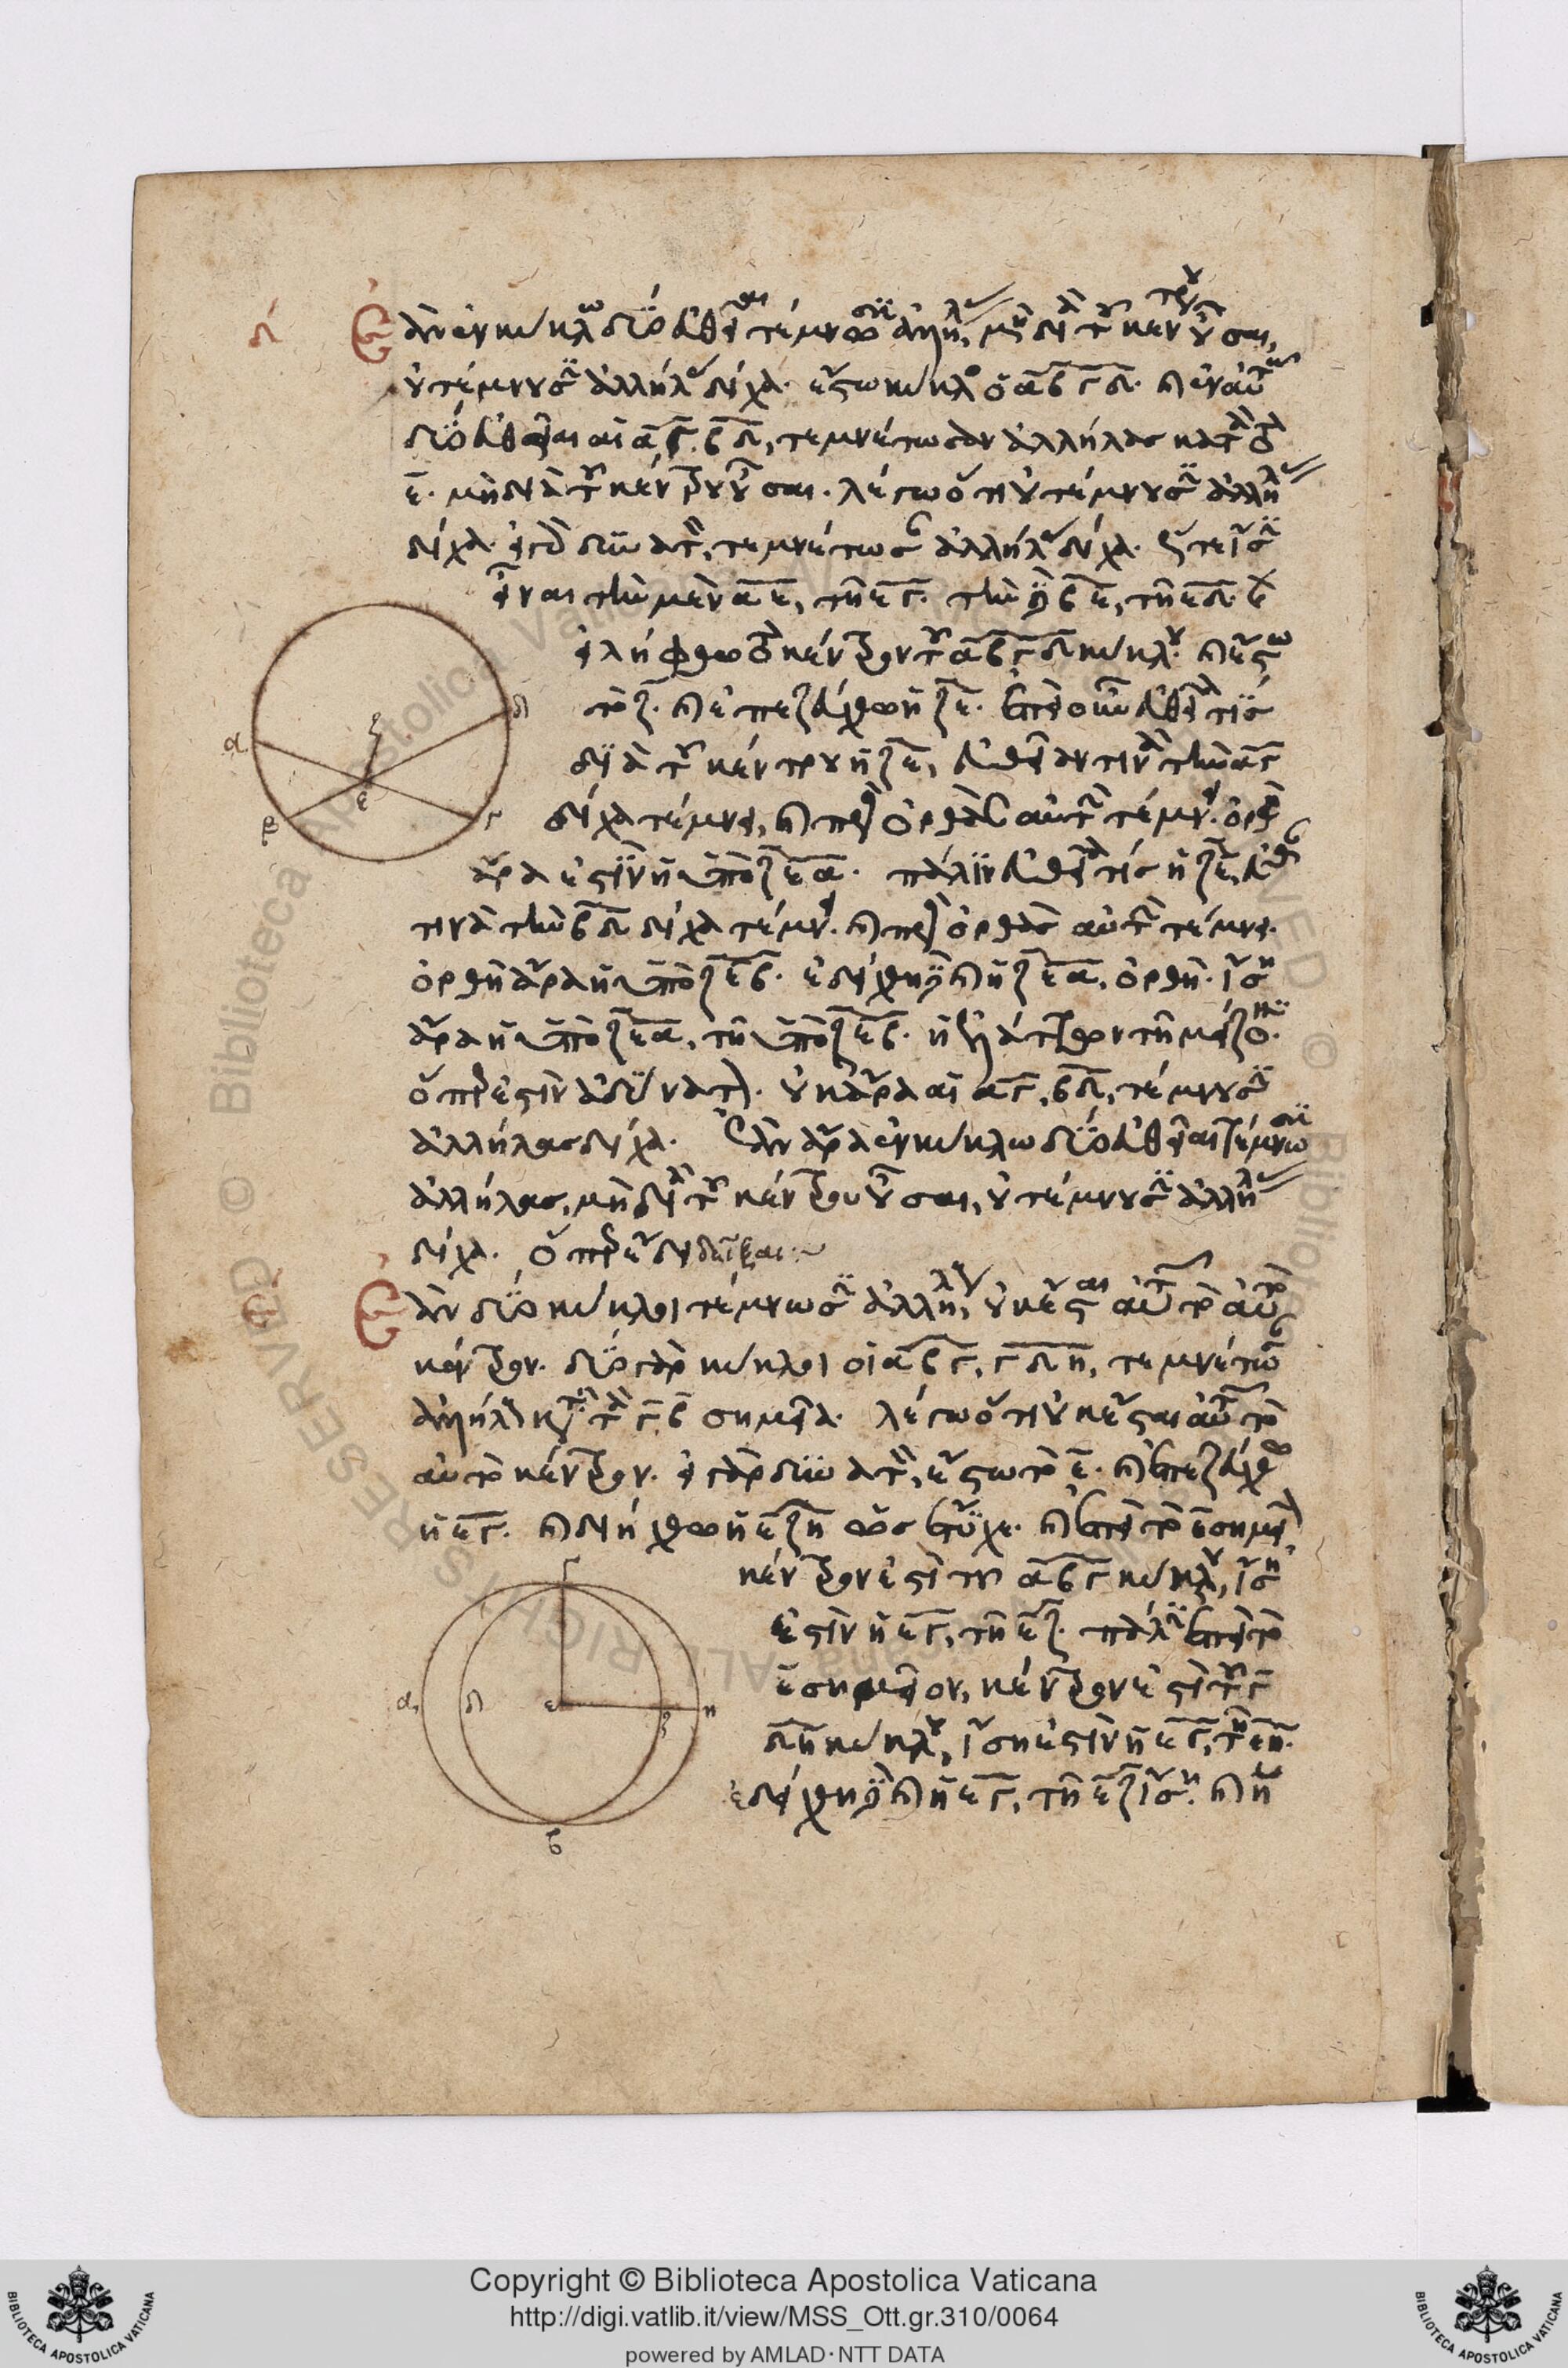 δ´ Ἐὰν ἐν κύκλω δύο εὐθεῖαι τέμνωσιν ἀλλήλας, μὴ διὰ τοῦ κέντρου οὖσαι,
οὐ τέμνουσιν ἀλλήλας δίχα. ἔστω κύκλος ὁ αβγδ. καὶ ἐν αὐτῶ
δύο εὐθεῖαι αἱ αγ. βδ, τεμνέτωσαν ἀλλήλας κατὰ τὸ
ε. μὴ διὰ τοῦ κέντρου οὖσαι. λέγω ὅτι οὐ τέμνουσιν ἀλλήλας
δίχα. εἰ γὰρ δυνατὸν, τεμνέτωσαν ἀλλήλας δίχα. ὥστε ἴσην
εἶναι τὴν μὲν αε, τῆ εγ. τὴν δὲ βε, τῆ εδ. καὶ
εἰλήφθω τὸ κέντρον τοῦ αβγδ κύκλου. καὶ ἔστω
τὸ ζ. καὶ ἐπεζεύχθω ἡ ζε. ἐπεὶ οὖν εὐθεῖά τις
διὰ τοῦ κέντρου ἡ ζε, εὐθεῖαν τινὰ τὴν αγ
δίχα τέμνει, καὶ πρὸς ὀρθὰς αὐτὴν τέμνει. ὀρθὴ
ἄρα ἐστὶν ἡ ὑπὸ ζεα. πάλιν εὐθεῖά τις ἡ ζε, εὐθεῖαν
τινὰ τὴν βδ δίχα τέμνει. καὶ πρὸς ὀρθὰς αὐτὴν τέμνει.
ὀρθὴ ἄρα ἡ ὑπὸ ζεβ. ἐδείχθη δὲ καὶ ἡ ζεα, ὀρθή. ἴση
ἄρα ἡ ὑπὸ ζεα, τῆ ὑπὸ ζεβ. ἡ ἐλάττων τῆ μείζονι.
ὅπερ ἐστὶν ἀδύνατον. οὐκ ἄρα αἱ αγ, βδ, τέμνουσιν
ἀλλήλας δίχα. Ἐὰν ἄρα ἐν κύκλω δύο εὐθεῖαι τέμνωσιν
ἀλλήλας, μὴ διὰ τοῦ κέντρου οὖσαι, οὐ τέμνουσιν ἀλλήλας
δίχα. ὅπερ ἔδει δεῖξαι:~
ε´ Ἐὰν δύο κύκλοι τέμνωσιν ἀλλήλους, οὐκ ἔσται αὐτῶν τὸ αὐτὸ
κέντρον. δύο γὰρ κύκλοι οἱ αβγ, γδη, τεμνέτωσαν
ἀλλήλους κατὰ τὰ γ β σημεῖα. λέγω ὅτι οὐκ ἔσται αὐτῶν τὸ
αὐτὸ κέντρον. εἰ γὰρ δυνατὸν, ἔστω τὸ ε. καὶ ἐπεζεύχθω
ἡ εγ. καὶ διήχθω ἡ εζη ὡς ἔτυχε. καὶ ἐπεὶ τὸ ε σημεῖον
κέντρον ἐστὶ τοῦ αβγ κύκλου, ἴση
ἐστὶν ἡ εγ, τῆ εζ. πάλιν ἐπεὶ τὸ
ε σημεῖον, κέντρον ἐστὶ τοῦ γ
δη κύκλου, ἴση ἐστὶν ἡ εγ, τῆ εη.
ἐδείχθη δὲ καὶ ἡ εγ, τῆ εζ ἴση. καὶ ἡ
α
β
γ
δ
ε
ζ
α
β
γ
δ
ε
ζ
η
Copyright © Biblioteca Apostolica Vaticana
http://digi.vatlib.it/view/MSS_Ott.gr.310/0064
powered by AMLAD·NTT DATA
BIBLIOTECA APOSTOLICA VATICANA
BIBLIOTECA APOSTOLICA VATICANA